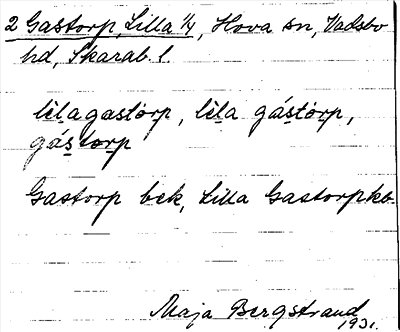 2 Gastorp, Lilla 1/4, Hova sn, Vadsbo
hd, Skarab. l.
lìlagastórp, lìla gástòrp,
gástorp
Gastorp bek, Lilla Gastorp kb.
Maja Bergstrand
1931.